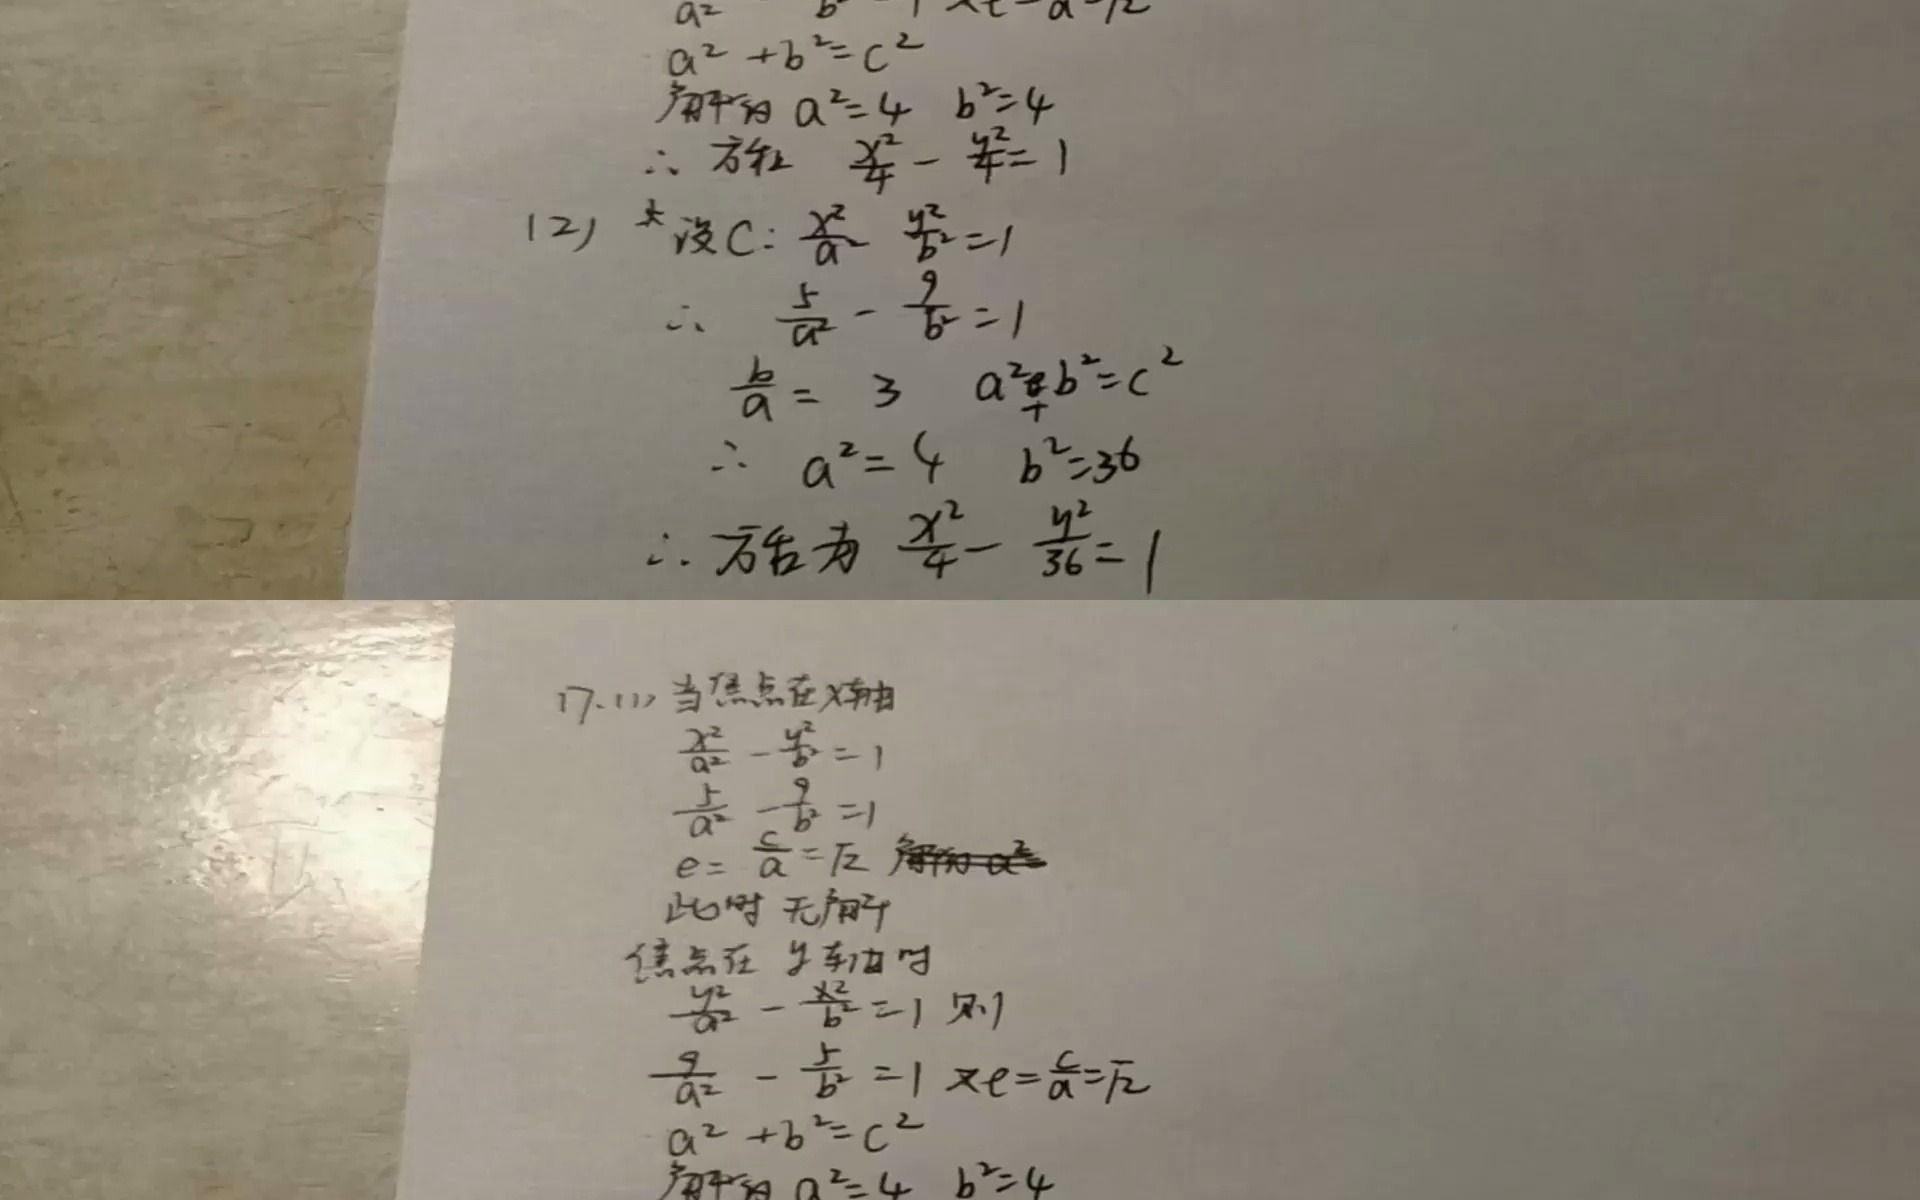 a² b² - 1 又e = a = √2
a² + b² = c²
解得 a² = 4 b² = 4
∴ 方程 x²/4 - y²/4 = 1
(2) 设C: x²/a² y²/b² = 1
∴ 5/a² - 9/b² = 1
b/a = 3 a² + b² = c²
∴ a² = 4 b² = 36
∴ 方程为 x²/4 - y²/36 = 1
17.(1) 当焦点在x轴
x²/a² - y²/b² = 1
5/a² - 9/b² = 1
e = c/a = √2 解得 a² =
此时 无解
焦点在 y轴时
y²/a² - x²/b² = 1 则
9/a² - 5/b² = 1 又e = c/a = √2
a² + b² = c²
解得 a² = 4 b² = 4